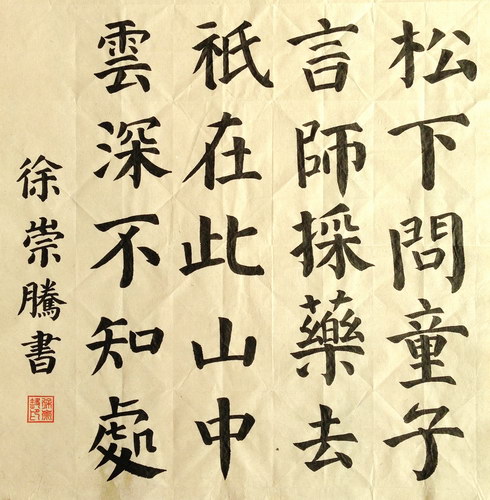 松下問童子
言師採藥去
祇在此山中
雲深不知處
徐崇騰書